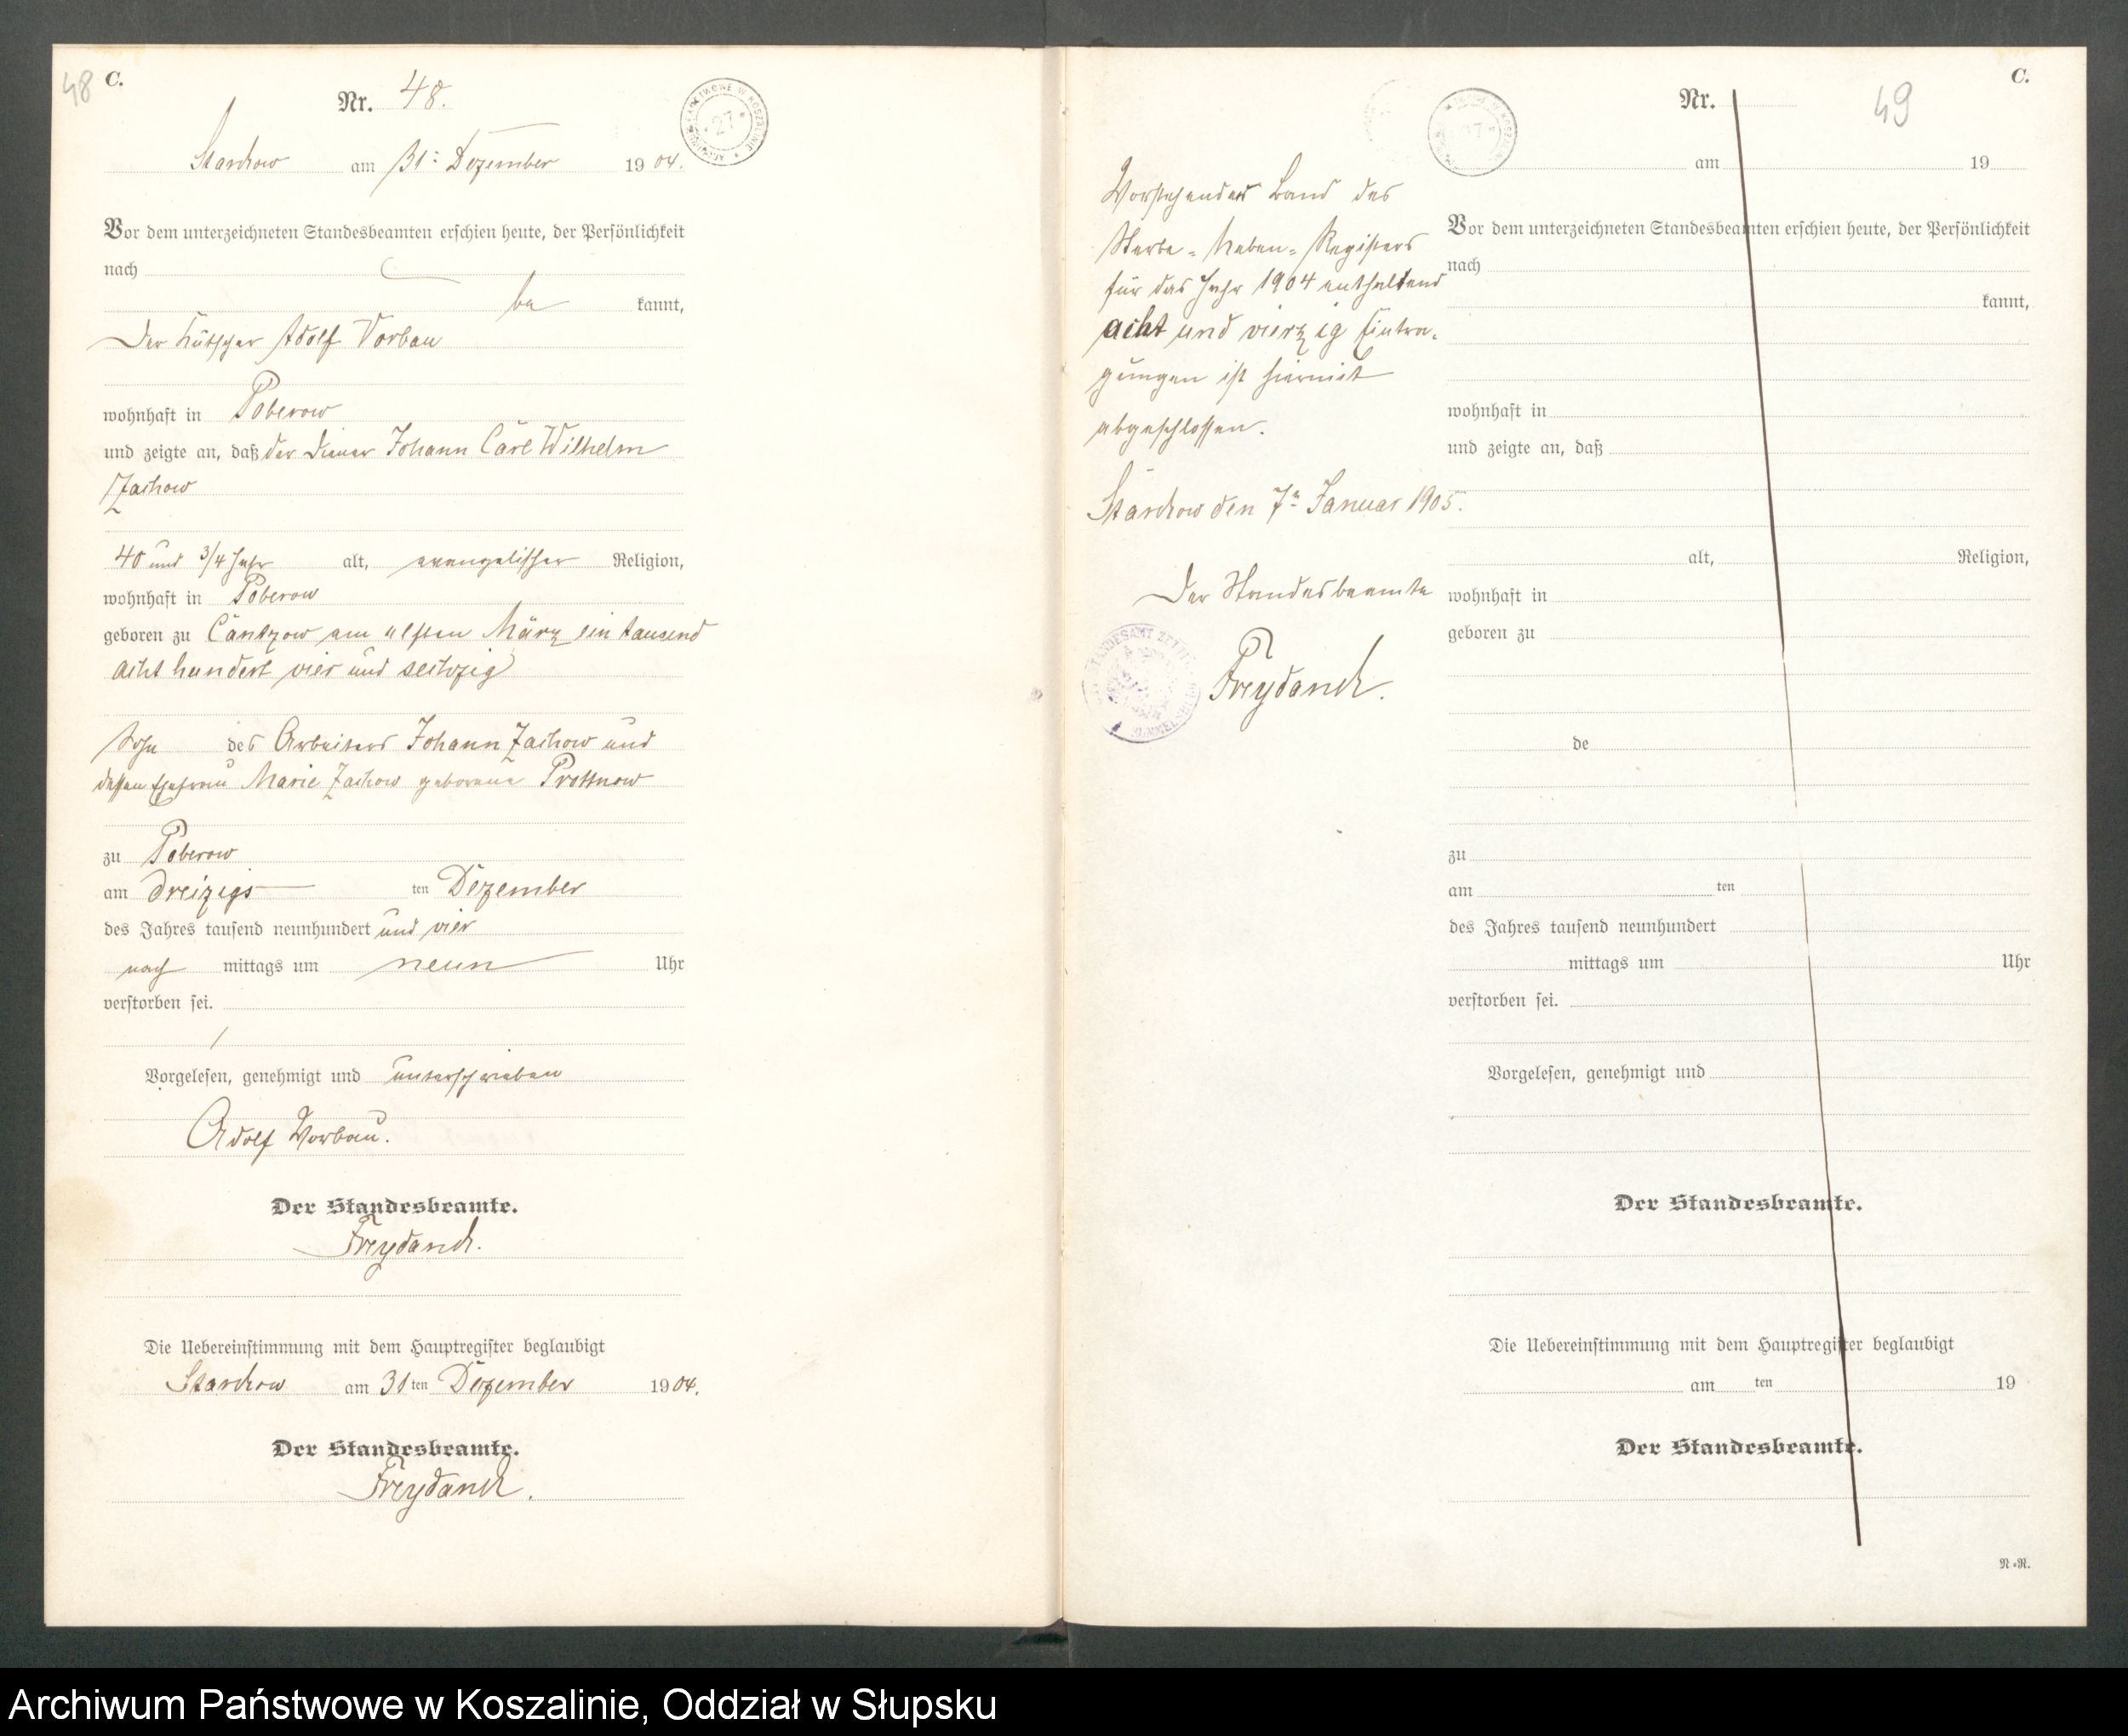 48
C.
Nr. 48.
Starchow am 31ten Dezember 1904.
Vor dem unterzeichneten Standesbeamten erschien heute, der Persönlichkeit
nach
be kannt,
Der Kutscher Adolf Vorbau
wohnhaft in Poberow
und zeigte an, daß der Diener Johann Carl Wilhelm
Zachow
40 und 3/4 Jahr alt, evangelischer Religion,
wohnhaft in Poberow
geboren zu Cantzow am elften März ein tausend
acht hundert vier und sechzig
Sohn des Arbeiters Johann Zachow und
dessen Ehefrau Marie Zachow geborene Prottnow
zu Poberow
am dreizigs ten Dezember
des Jahres tausend neunhundert und vier
nach mittags um neun Uhr
verstorben sei.
Vorgelesen, genehmigt und unterschrieben
Adolf Vorbau.
Der Standesbeamte.
Freydanck.
Die Uebereinstimmung mit dem Hauptregister beglaubigt
Starchow am 31 ten Dezember 1904.
Der Standesbeamte.
Freydanck.
C.
Nr.
49
am 19
Vorstehender Band des
Sterbe-Neben-Registers
für das Jahr 1904 enthaltend
acht und vierzig Eintra-
gungen ist hiermit
abgeschlossen.
Starchow den 7ten Januar 1905.
Der Standesbeamte
Freydanck.
Vor dem unterzeichneten Standesbeamten erschien heute, der Persönlichkeit
nach
kannt,
wohnhaft in
und zeigte an, daß
alt, Religion,
wohnhaft in
geboren zu
de
zu
am ten
des Jahres tausend neunhundert
mittags um Uhr
verstorben sei.
Vorgelesen, genehmigt und
Der Standesbeamte.
Die Uebereinstimmung mit dem Hauptregister beglaubigt
am ten 19
Der Standesbeamte.
N.-R.
Archiwum Państwowe w Koszalinie, Oddział w Słupsku